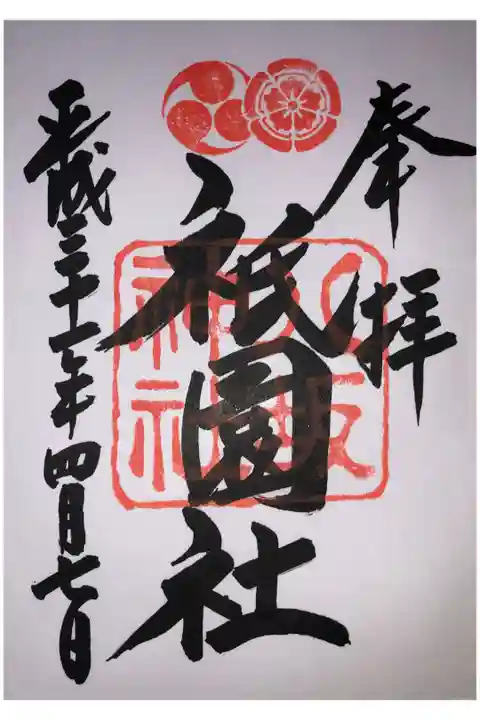 奉拝
八坂神社
祇園社
平成三十一年四月七日